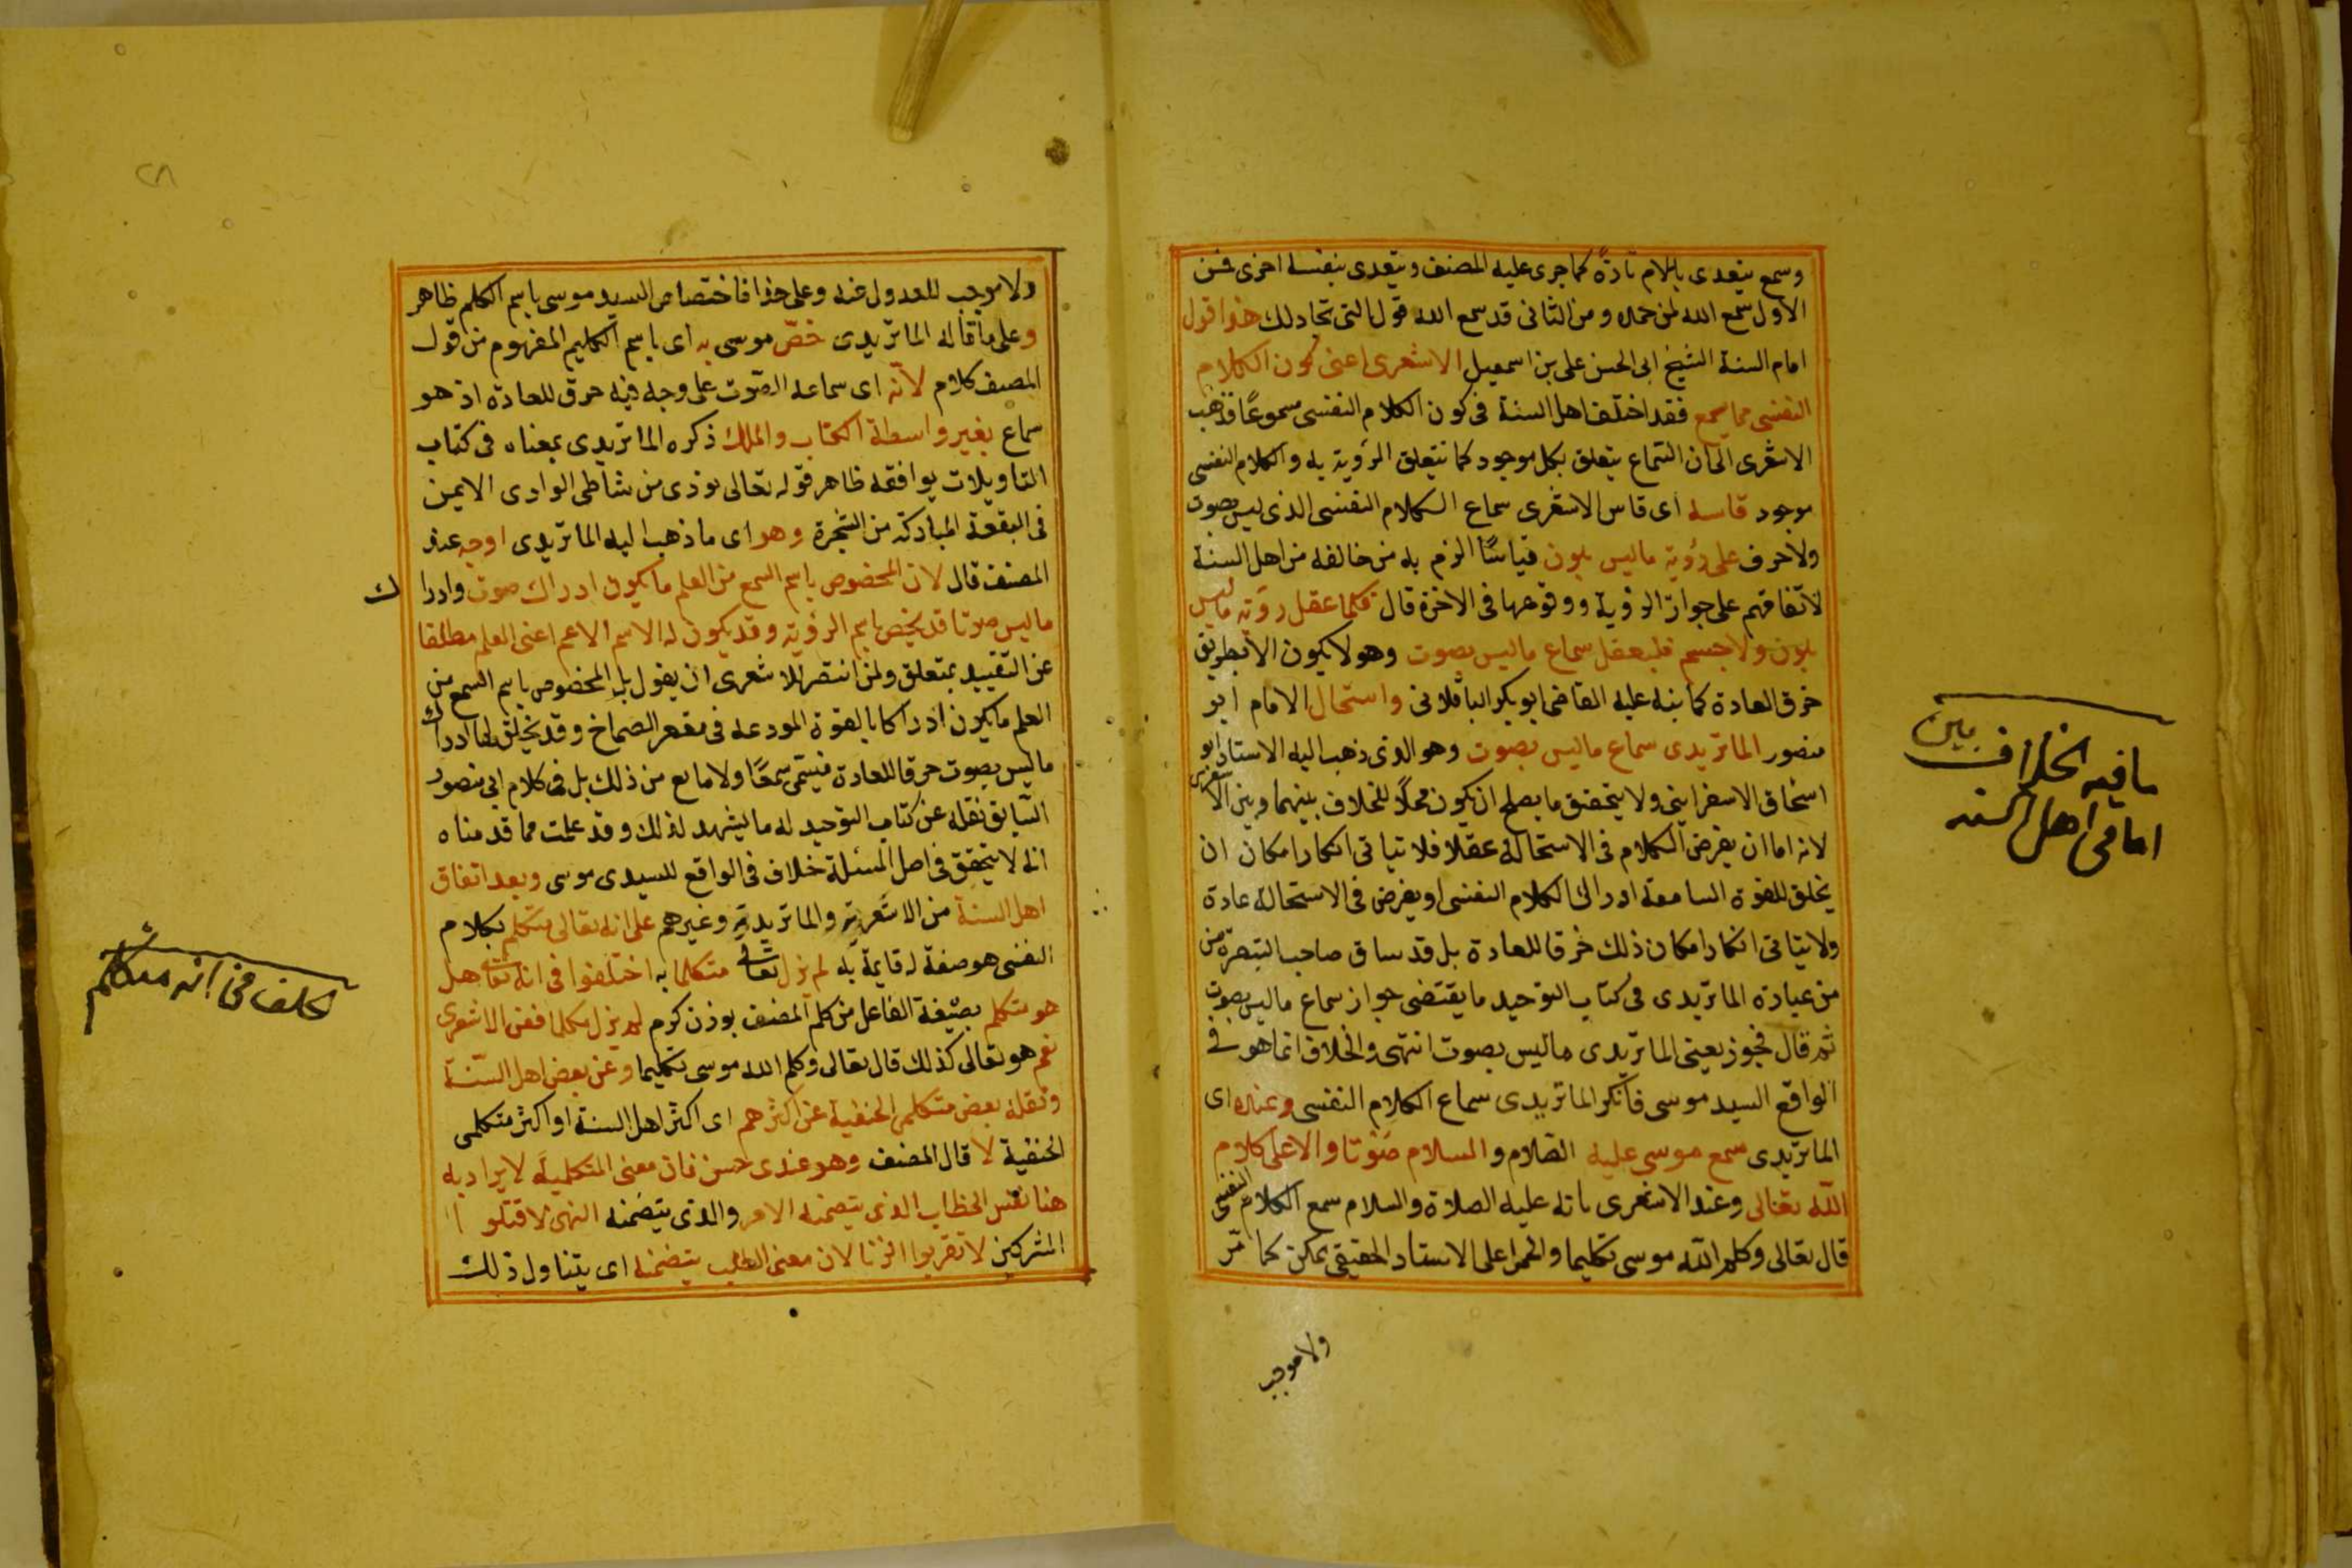 وسمع يتعدى باللام تارة كما جرى عليه المصنف ويتعدى بنفسه اخرى فمن
الاول سمع الله لمن حمده ومن الثانى قد سمع الله قول التى تجادلك هذا قول
امام السنة الشيخ ابى الحسن على بن اسمعيل الاشعرى اعنى كون الكلام
النفسى مما يسمع فقد اختلف اهل السنة فى كون الكلام النفسى مسموعًا فذهب
الاشعرى الى ان السماع يتعلق بكل موجود كما تتعلق الرؤية به والكلام النفسى
موجود قاسه اى قاس الاشعرى سماع الكلام النفسى الذى ليس بصوت
ولا حرف على رؤية ما ليس بلون قياسًا الزم به من خالفه من اهل السنة
لاتفاقهم على جواز الرؤية ووقوعها فى الاخرة قال فكما عقل رؤية ما ليس
بلون ولا جسم فليعقل سماع ما ليس بصوت وهو لا يكون الا بطريق
خرق العادة كما نبه عليه القاضى ابو بكر الباقلانى واستحال الامام ابو
منصور الماتريدى سماع ما ليس بصوت وهو الذى ذهب اليه الاستاد ابو
اسحاق الاسفراينى ولا يتحقق ما يصلح ان يكون محلًا للخلاف بينهما وبين الاشعرى
لانه اما ان يفرض الكلام فى الاستحالة عقلا فلا يتاتى انكار امكان ان
يخلق للقوة السامعة ادراك الكلام النفسى او يفرض فى الاستحالة عادة
ولا يتاتى انكار امكان ذلك خرقا للعادة بل قد ساق صاحب التبصرة من
من عبارة الماتريدى فى كتاب التوحيد ما يقتضى جواز سماع ما ليس بصوت
ثم قال فجوز يعنى الماتريدى ما ليس بصوت انتهى والخلاف انما هو فى
الواقع السيد موسى فانكر الماتريدى سماع الكلام النفسى وعنده اى
الماتريدى سمع موسى عليه الصلاة والسلام صوتا دالا على كلام
الله تعالى وعند الاشعرى بانه عليه الصلاة والسلام سمع الكلام النفسى
قال تعالى وكلم الله موسى تكليما والحمل على الاسناد الحقيقى ممكن كما مر
ولا موجب
ما فيه الخلاف بين
امامى اهل السنه
ولا موجب للعدول عنه وعلى هذا فاختصاص السيد موسى باسم الكلم ظاهر
وعلى ما قاله الماتريدى خصّ موسى به اى باسم الكليم المفهوم من قول
المصنف كلام لانه اى سماعه الصوت على وجه فيه خرق للعادة اذ هو
سماع بغير واسطة الكتاب والملك ذكره الماتريدى بمعناه فى كتاب
التاويلات يوافقه ظاهر قوله تعالى نودى من شاطئ الوادى الايمن
فى البقعة المباركة من الشجرة وهو اى ما ذهب اليه الماتريدى اوجه عند
المصنف قال لان المخصوص باسم السمع من العلم ما يكون ادراك صوت وادراك
ما ليس صوتا قد يخص باسم الرؤية وقد يكون له الاسم الاعم اعنى العلم مطلقا
عن التقييد بمتعلق ولمن انتصر للاشعرى ان يقول بل المخصوص باسم السمع من
العلم ما يكون ادراكا بالقوة المودعه فى مقعر الصماخ وقد يخلق لها ادراك
ما ليس بصوت خرقا للعادة فيسمى سمعًا ولا مانع من ذلك بل فى كلام ابى منصور
السابق نقله عن كتاب التوحيد له ما يشهد لذلك وقد علمت مما قدمناه
انه لا يتحقق فى اصل المسئلة خلاف فى الواقع للسيدى موسى وبعد اتفاق
اهل السنة من الاشعرية والماتريدية وغيرهم على انه تعالى متكلم بكلام
النفسى هو صفة له قايمة به لم يزل تعالى متكلما به اختلفوا فى انه تعالى هل
هو متكلم بصيغة الفاعل من كلم المضعف بوزن كرم لم يزل مكلما فعن الاشعرى
نعم هو تعالى كذلك قال تعالى وكلم الله موسى تكليما وعن بعض اهل السنة
ونقله بعض متكلمى الحنفية عن اكثرهم اى اكثر اهل السنة او اكثر متكلمى
الحنفية لا قال المصنف وهو عندى حسن فان معنى المتكلمية لا يراد به
هنا نفس الخطاب الذى يتضمنه الامر والذى يتضمنه النهى لا قتلوا
المشركين لا تقربوا الزنا لان معنى الطلب يتضمنه اى يتناول ذلك